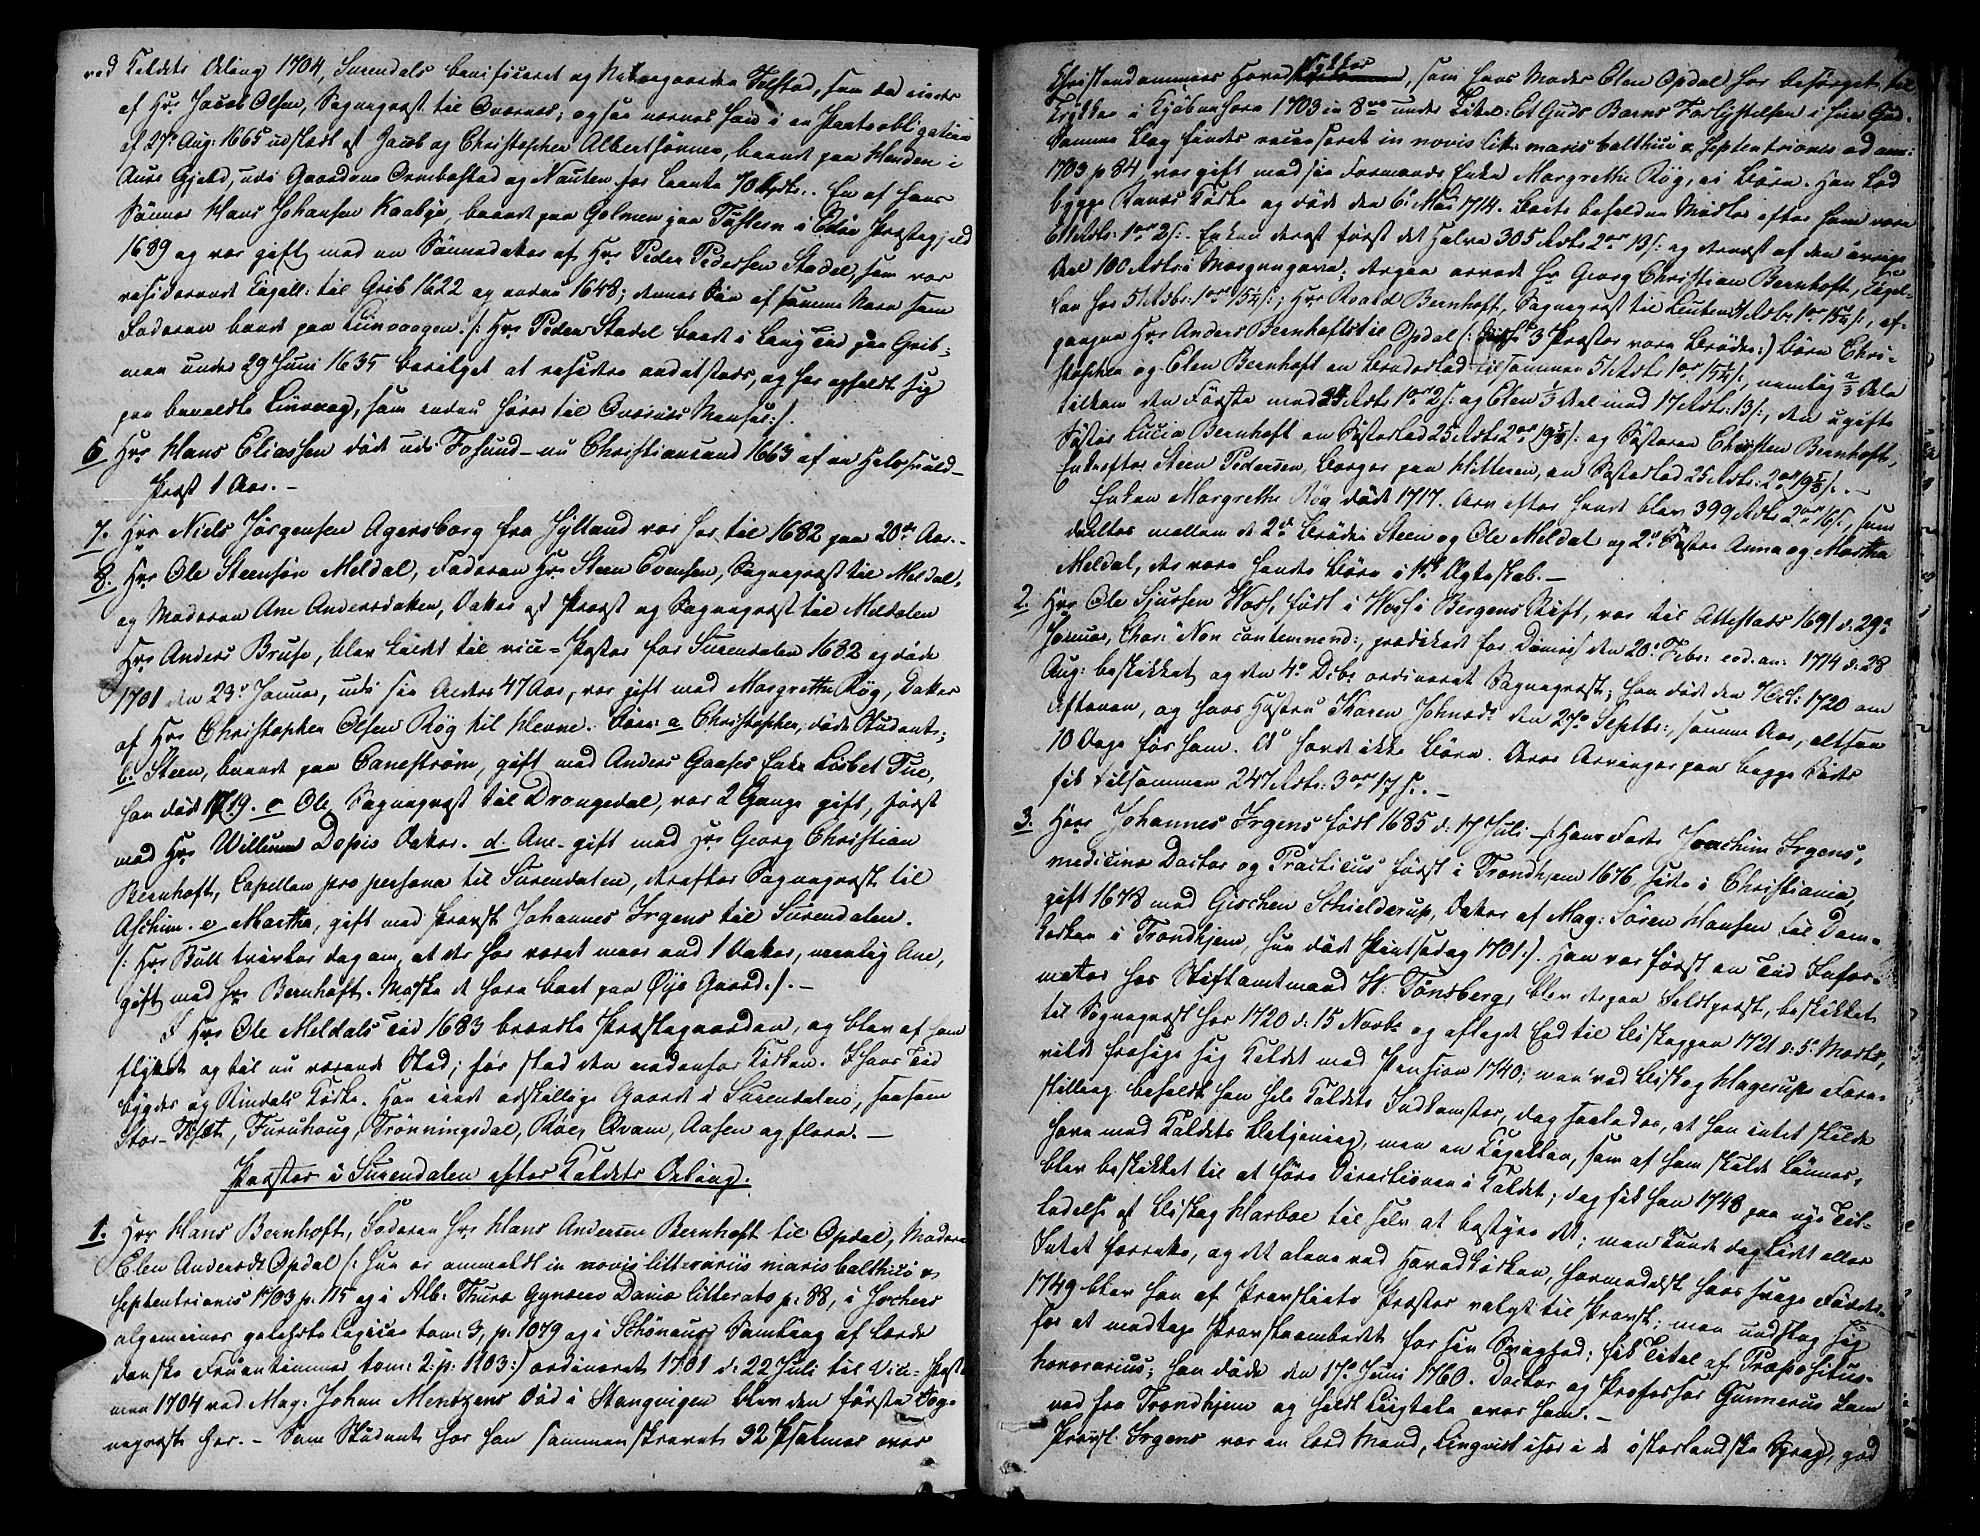 ved Caldets Deling 1704, Surendals beneficeret og Nabogaarden Tefstad, som da eiedes
af Hr. Jacob Olsen, Sognepræst til Qvernes; ogsaa nævnes han i en Panteobligation
af 27de Aug: 1665 udstædt af Jacob og Christopher Albertsønner, boende paa Henden i
Aure Gjeld, udi Gaardene Ormbostad og Nauten for laante 70 Rdlr. En af hans
Sönner Hans Johansen Kaabye, boende paa Golmen paa Tusteren i Edöe Præstegjeld
1689 og var gift med en Sönnedatter af Hr. Peder Pedersen Stadel, som var
residerende Capell: til Grib 1622 og endnu 1648; dennes Sön af samme Navn som
Faderen boede paa Linvaagen. /: Hr. Peder Stadel boede i lang Tid paa Grib,
men under 29 Juni 1635 bevilget at residere andetsteds, og har opholdt sig
paa bemeldte Linvaag, som endnu hörer til Qvernes Mensus:/.
6. Hr. Hans Eliassen döde udi Fosund - nu Christiansund 1663 af en Halsbuld -
Præst 1 Aar. -
7. Hr. Niels Jörgensen Agersborg fra Jylland var her til 1682 paa 20de Aar. -
8. Hr. Ole Steensön Meldal, Faderen Hr. Steen Evensen, Sognepræst til Meldal,
og Moderen Ane Andersdatter, Datter af Provst og Sognepræst til Meldalen
Hr. Anders Bruse, blev kaldet til vice-Pastor for Surendalen 1682 og döde
1701 den 23de Januar, udi sin Alders 47 Aar, var gift med Margrethe Røg, Datter
af Hr. Christopher Olsen Røg til Hevne. Börn: a Christopher, döde Student;
b. Steen, boende paa Canestrøm, gift med Anders Gaases Enke Lisbet Tue,
han döde 1719. c Ole, Sognepræst til Drangedal, var 2 Gange gift, först
med Hr. Willum Dopis Datter. d. Ane gift med Hr. Georg Christian
Bernhoft, Capellan pro persona til Surendalen, derefter Sognepræst til
Aschim. e Martha, gift med Provst Johannes Irgens til Surendalen.
/: Hr. Bull tvivler dog om, at der har været meer end 1 Datter, nemlig Ane,
gift med Hr. Bernhoft. Maske de have boet paa Öye Gaard:/. -
I Hr. Ole Meldals Tid 1683 brændte Præstegaarden, og blev af ham
flyttet og til nu værende Sted; för stod den nedenfor Kirken. I hans Tid
bygdes og Rindals Kirke. Han eiede adskillige Gaarde i Surendalen, saasom
Stor-Thset, Furuhoug, Trönningsdal, Röe, Qvam, Aasen og flere. -
Præster i Surendalen efter Caldets Deling.
1. Hr. Hans Bernhoft, Faderen Hr. Hans Andersen Bernhoft til Opdal, Moderen
Elen Andersdtr Opdal /: hun er anmeldt in novis litterariis maris balthici &
septentrionis 1703 p. 115 og i Alb. Thura Gynæceo Daniæ litterato p: 88, i Jochers
algemeines gelehrte Lexicon tom: 3, p. 1079 og i Schönaus Samling af lærde
danske Fruentimmer tom: 2. p: 1103:/ ordineret 1701 d: 22 Juli til Vice-Past
men 1704 ved Mag: Johan Mentzens Död i Stangvigen blev den förste Sog-
nepræst her. - Som Student har han sammenskrevet 32 Psalmer over
Christendommens Hoved Stykker, som hans Moder Elen Opdal har besörget til
Trykken i Kjöbenhavn 1703 in 8vo under Titel: Et Guds Barns Forlystelsen i sin Gud.
Samme Bog findes recenseret in novis litt: maris balthici & septentrionis ad ann:
1703 p 84, var gift med sin Formands Enke Margrethe Røg, ei Börn. Han lod
bygge Ranes Kirke og döde den 6te Mai 1714. Boets beholdne Midler efter ham vare
611 Rdr: 1 ort 2 s: Enken deraf först det halve 305 Rdr 2 ort 13 s: og dernæst af den övrige
Deel 100 Rdr: i Morgengave; Arven arvede Hr. Georg Christian Bernhoft, Capel-
lan her 51 Rdr: 1 ort 15¼ s:; Hr. Roald Bernhoft, Sognepræst til Leuten 51 Rdr: 1 ort 15¼ s:, af-
gangne Hr. Anders Bernhofts til Opdal (: disse 3 Præster vare Brödre:) Börn Chri-
stopher og Elen Bernhoft en Broderlod tilsammen 51 Rdr: 1 ort 15¼ s:, nemlig ⅔ Dele
tilkom den Förste med 34 Rdr 1 ort 2 s: og Elen ⅓ Deel med 17 Rdr: 13 s:, den ugifte
Söster Lucia Bernhoft en Sösterlod 25 Rdr 2 ort 19⅝ s: og Sösteren Christen Bernhoft,
Enke efter Steen Pedersen, Borger paa Hitteren, en Sösterlod 25 Rdr: 2 ort 19⅝ s: -
Enken Margrethe Røg döde 1717. Arv efter hende blev 399 Rdr 2 ort 16 s:, som
deeltes mellem de 2de Brödre Steen og Ole Meldal og 2de Söstre Anna og Martha
Meldal, der vare hendes Börn i 1ste Ægteskab. -
2. Hr. Ole Sjursen Wos, född i Wos i Bergens Stift, var til Attestats 1691 d: 29de
Januar, Char: Non contemnend:, prædiket for Dimis den 20de Febr: eod: an: 1714 d: 28
Aug: beskikket og den 4de Dcbr ordineret Sognepræst; han döde den 7 Oct: 1720 om
Aftenen, og hans Hustru Karen Johnsdr den 27de Septbr:, samme Aar, altsaa
10 Dage för ham. De havde ikke Börn. Deres Arvinger paa begge Sider
fik tilsammen 247 Rdr: 3 ort 17 s: -
3. Herr Johannes Irgens född 1685 d: 17 Juli - /: Hans Fader Joachim Irgens,
medicinæ Doctor og Practicus först i Trondhjem 1676, siden i Christiania,
gift 1678 med Gischen Schielderup, Datter af Mag: Sören Hansen til Dom-
kirken i Trondhjem, hun döde Pintsedag 1701:/. Han var först en Tid Infor-
mator hos Stiftamtmand H: Tönsberg, blev derpaa Feldtpræst, beskikket
til Sognepræst her 1720 d: 15 Novbr og aflagde Eed til Biskoppen 1721 d: 5 Marts,
vilde frasige sig Caldet med Pension 1740; men ved Biskop Hagerups Fore-
stilling beholdt han hele Caldets Indkomster, dog saaledes, at han intet skulde
have med Caldets Betjening, men en Capellan, som af ham skulde lönnes,
blev beskikket til at före Directionen i Caldet; dog fik han 1748 paa nye Til-
ladelse af Biskop Harboe til selv at bestyre det; men kunde dog lidt eller
Intet forrette, og det alene ved Hovedkirken, formedelst hans svage Födder.
1749 blev han af Provstiets Præster valgt til Provst; men undslog sig
for at modtage Provsteembedet for sin Svaghed; fik Titel af Præpositus-
honorarius; han döde den 17de Juni 1760. Doctor og Professor Gunnerus kom
ned fra Trondhjem og holdt Ligtale over ham. -
Provst Irgens var en lærd Mand, Lingvist især i de österlandske Sprog, god